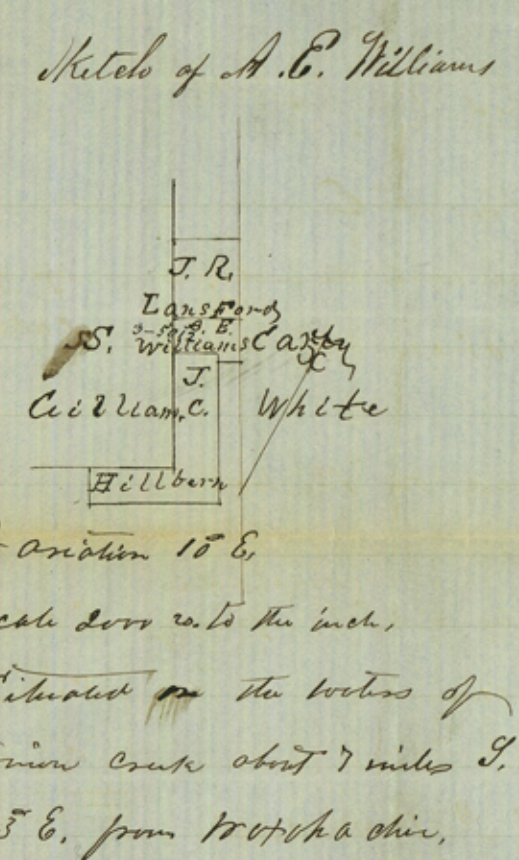 Sketch of A. E. Williams
J. R.
Lansford
A. E.
S. Williams Carty
J.
William, C. White
Hillbern
ariation 10° E.
cale 2000 vs. to the inch,
ituated on the waters of
creek about 7 miles S.
E. from Woxhachie.